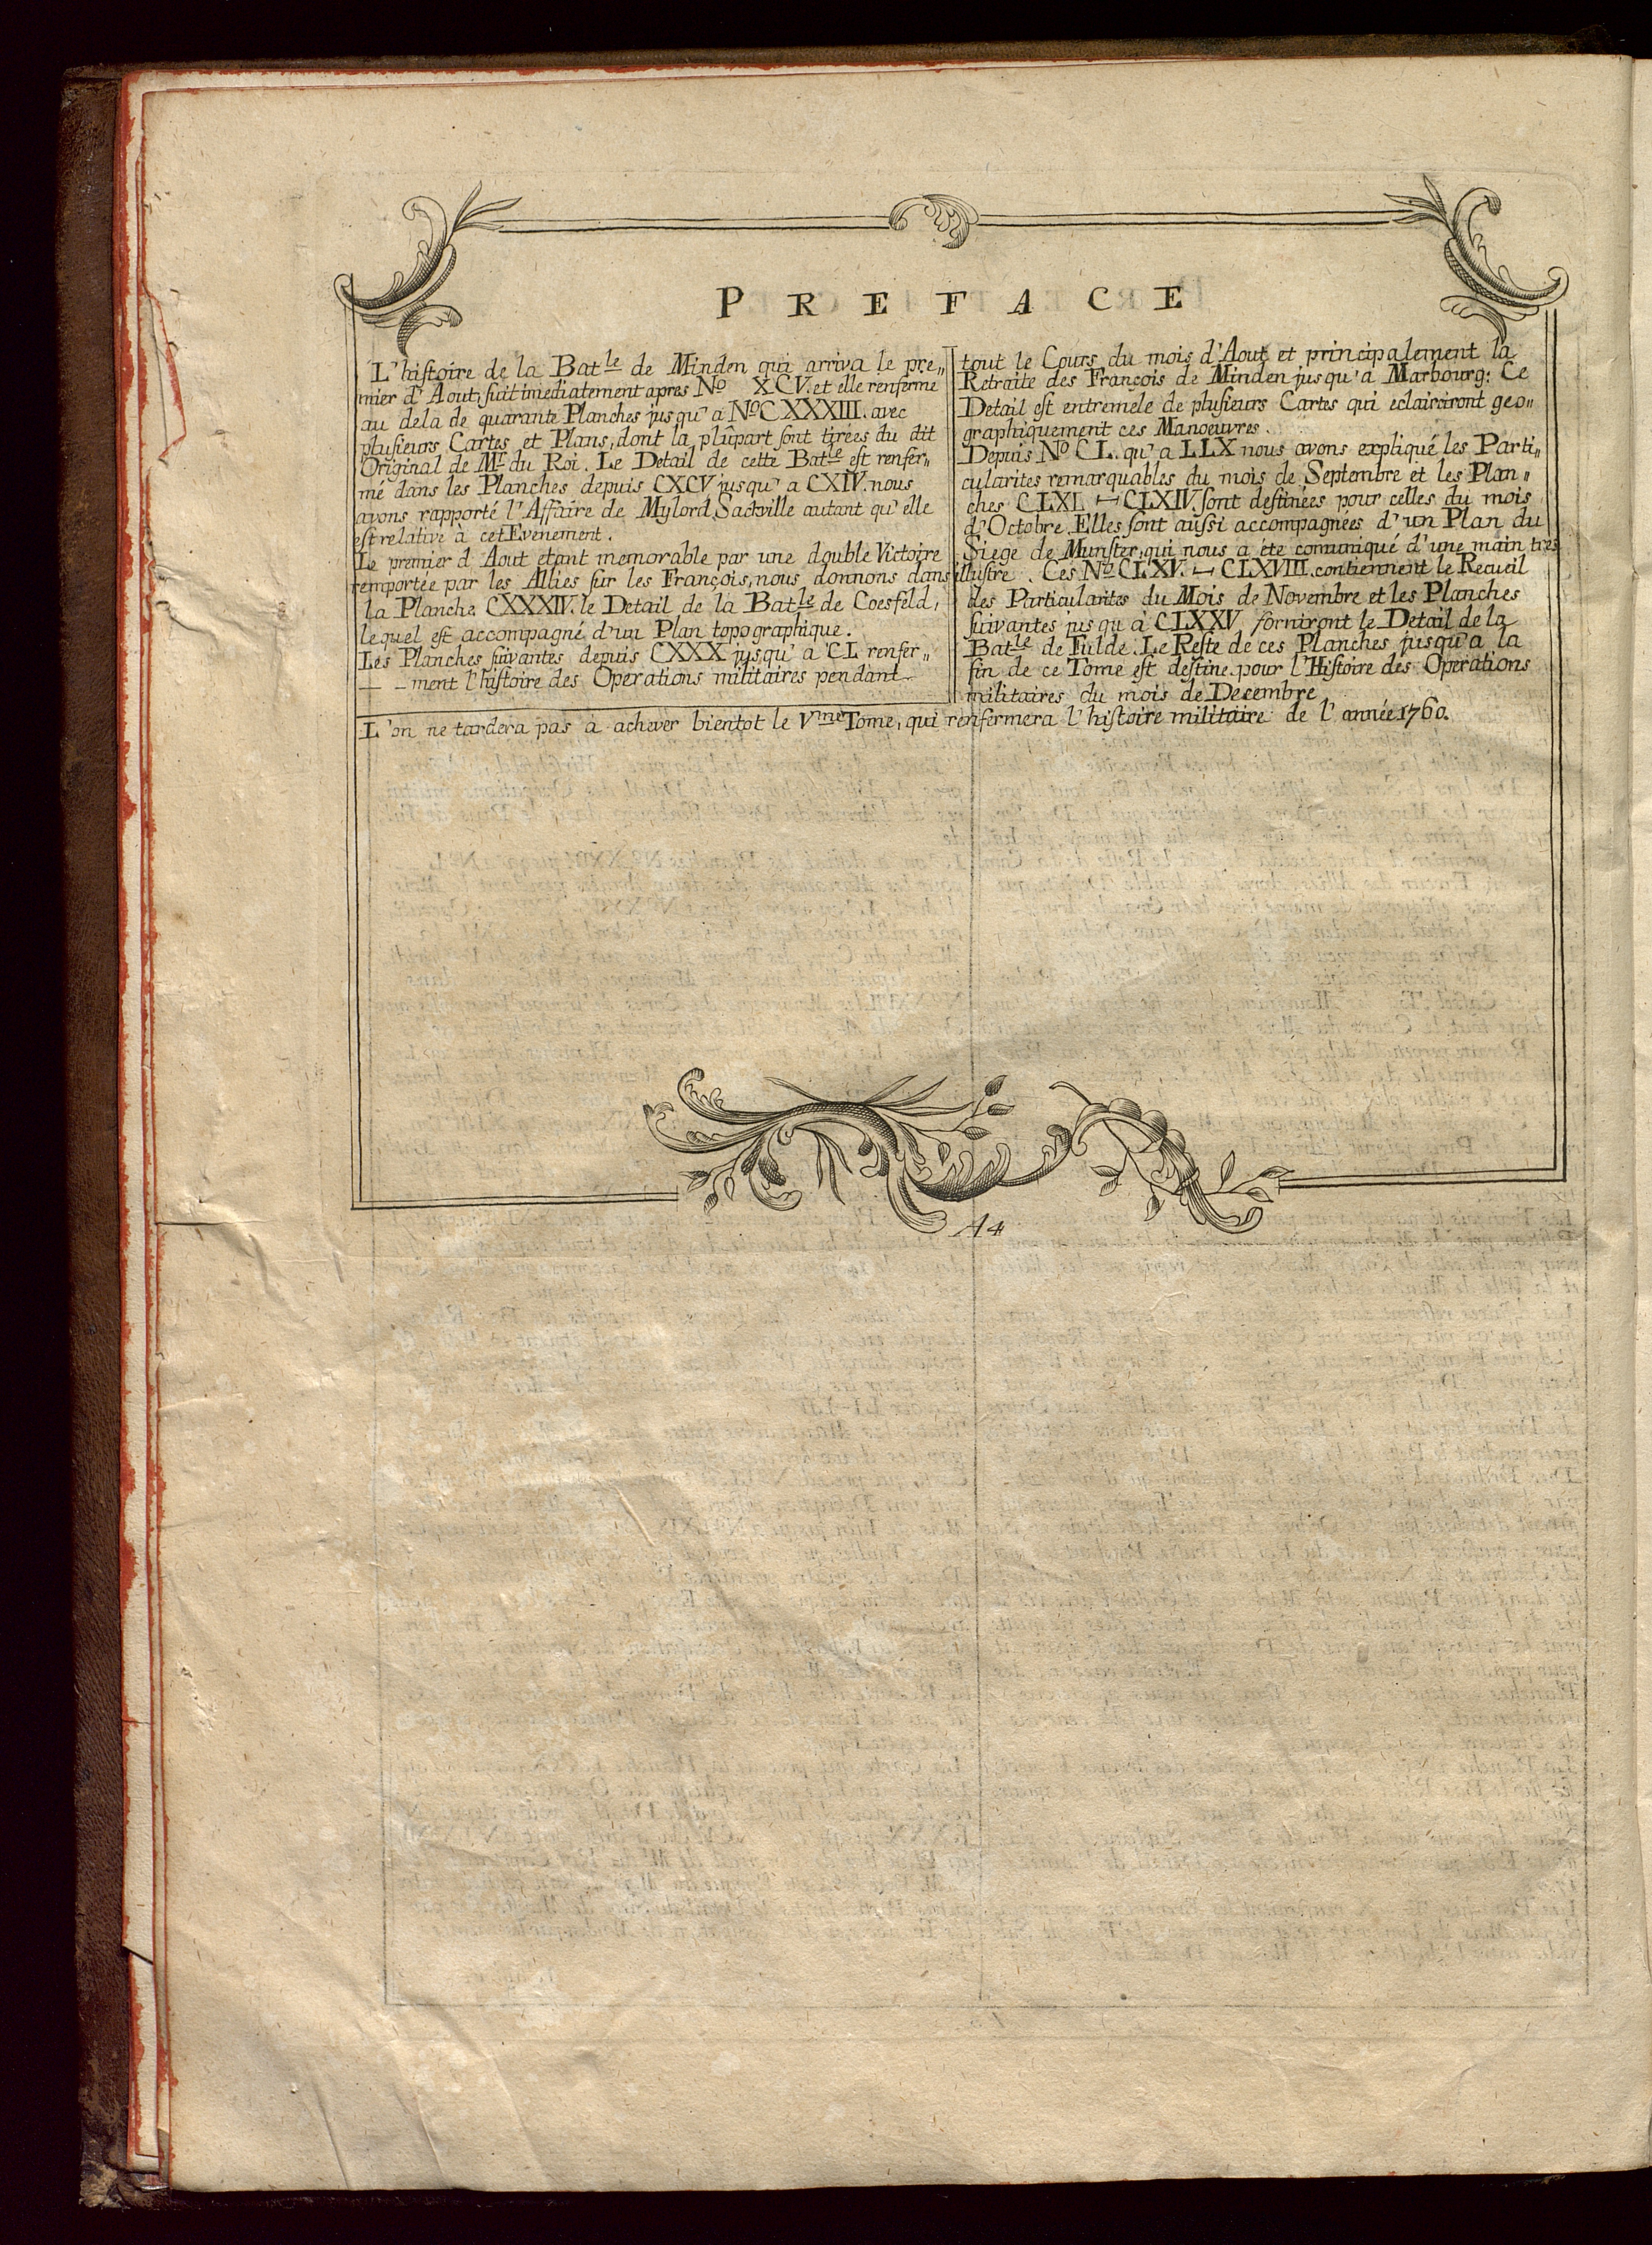 PREFACE
L'histoire de la Bat.le de Minden qui arriva le pre„
mier d'Aout, suit imediatement apres No XCV. et elle renferme
au dela de quarante Planches jusqu'a No CXXXIII. avec
plusieurs Cartes et Plans, dont la plûpart sont tirées du dit
Original de Mr du Roi. Le Detail de cette Bat.le est renfer„
mé dans les Planches depuis CXCV jusqu'a CXIV. nous
avons rapporté l'Affaire de Mylord Sackville autant qu'elle
est relative à cet Evenement.
Le premier d Aout etant memorable par une double Victoire
remportée par les Allies sur les François, nous donnons dans
la Planche CXXXIV. le Detail de la Bat.le de Coesfeld,
lequel est accompagné d'un Plan topographique.
Les Planches suivantes depuis CXXX jusqu'a CL renfer„
ment l'histoire des Operations militaires pendant
tout le Cours du mois d'Aout et principalement la
Retraite des François de Minden jusqu'a Marbourg: Ce
Detail est entremele de plusieurs Cartes qui eclairciront geo„
graphiquement ces Manoeuvres.
Depuis No CL. qu'a LLX nous avons expliqué les Parti„
cularites remarquables du mois de Septembre et les Plan„
ches CLXI. — CLXIV. sont destinées pour celles du mois
d'Octobre. Elles sont aussi accompagnées d'un Plan du
Siege de Munster, qui nous a ete comuniqué d'une main tres
illustre. Ces No CLXV. — CLXVIII. contiennent le Recueil
des Particularites du Mois de Novembre et les Planches
suivantes jusqu'a CLXXV forniront le Detail de la
Bat.le de Fulde. Le Reste de ces Planches jusqu'a la
fin de ce Tome est destine pour l'Histoire des Operations
militaires du mois de Decembre
L'on ne tardera pas à achever bientot le Vme Tome, qui renfermera l'histoire militaire de l'année 1760.
A4